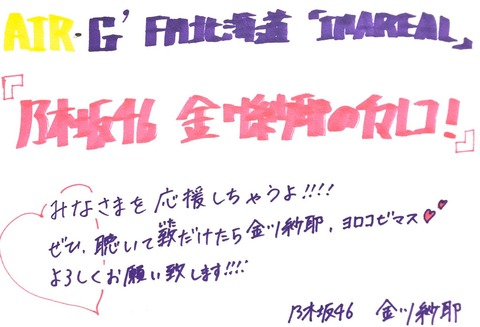 AIR-G' FM北海道「IMAREAL」
『乃木坂46 金川紗耶のやんレコ!』
みなさまを応援しちゃうよ!!!!
ぜひ、聴いて致だけたら金川紗耶、ヨロコビマス
よろしくお願い致します!!!!
乃木坂46 金川紗耶